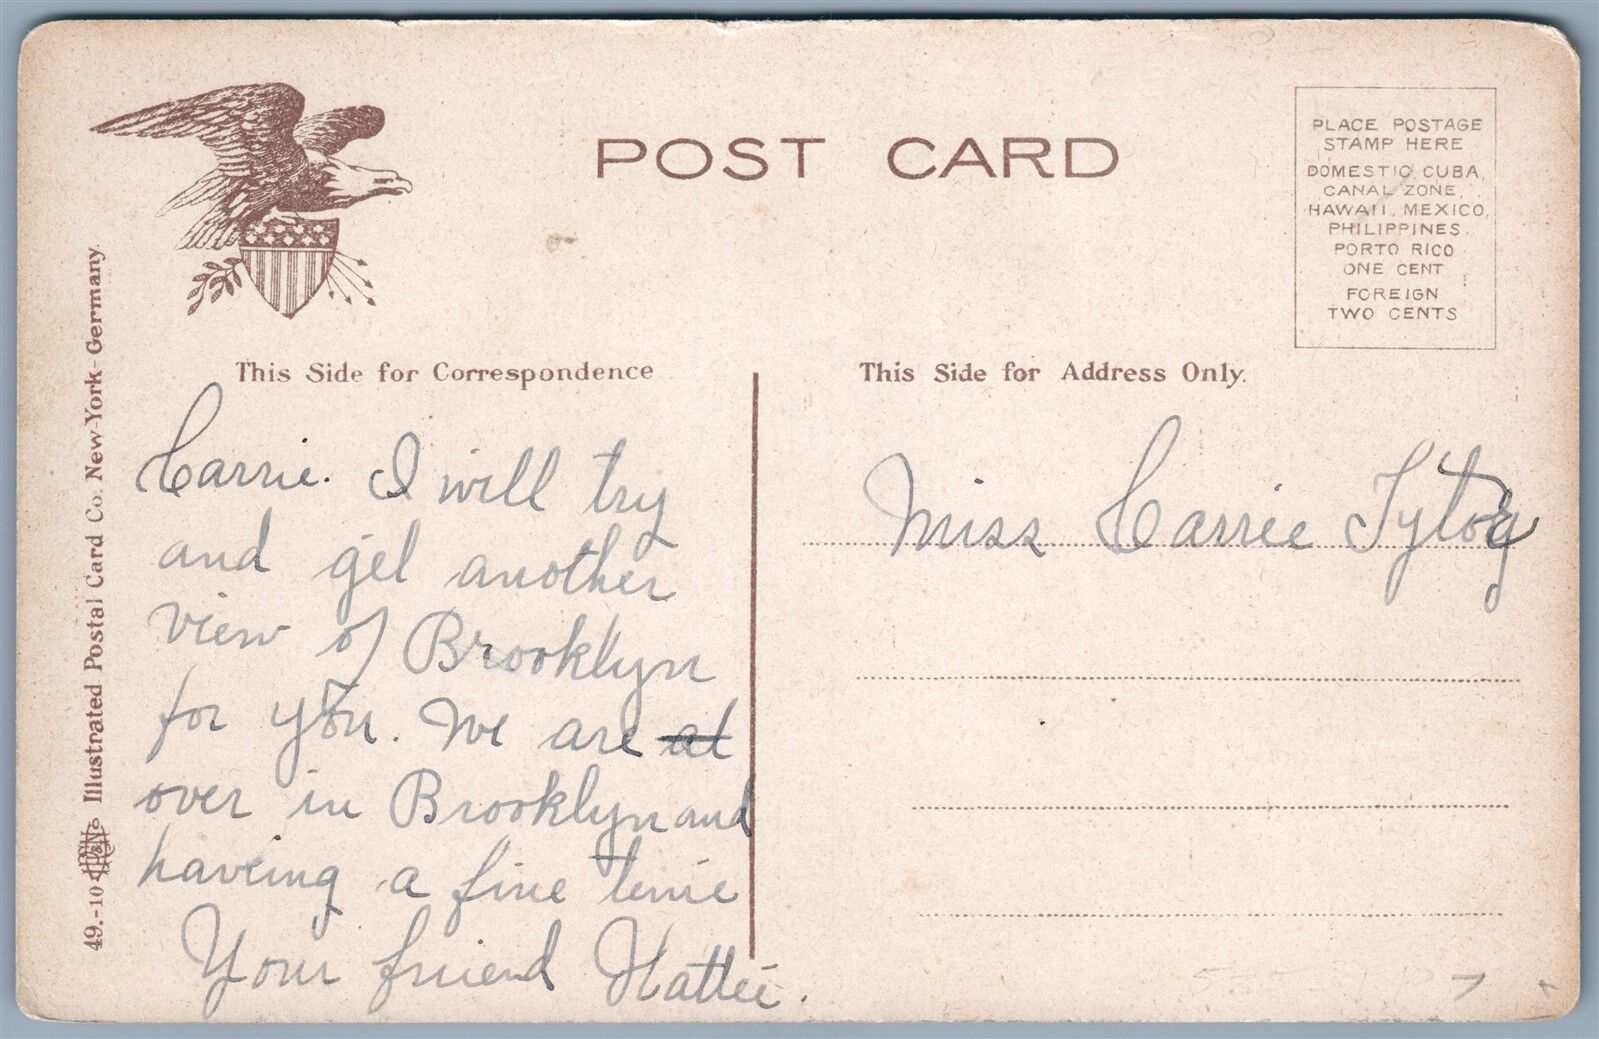 POST CARD
PLACE POSTAGE
STAMP HERE
DOMESTIC, CUBA,
CANAL ZONE,
HAWAII, MEXICO,
PHILIPPINES,
PORTO RICO
ONE CENT
FOREIGN
TWO CENTS
49.-10 Illustrated Postal Card Co. New-York-Germany.
This Side for Correspondence
Carrie. I will try
and get another
view of Brooklyn
for you. We are at
over in Brooklyn and
having a fine time
Your friend Hattie.
This Side for Address Only.
Miss Carrie